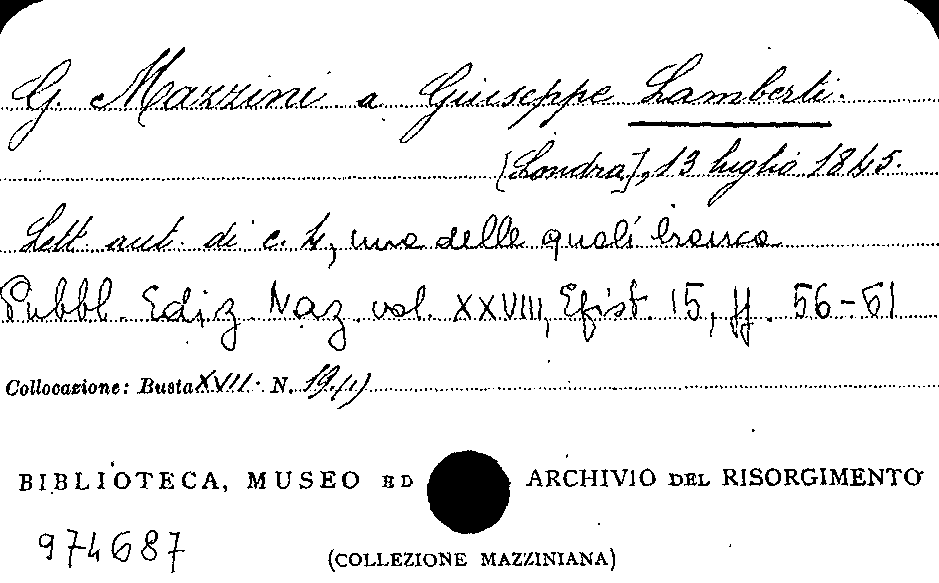 G. Mazzini a Giuseppe Lamberti.
[Londra], 13 luglio 1845.
Lett. aut. di c. 4, una delle quali bianca
Pubbl. Ediz. Naz. vol. XXVIII, Epist. 15, pp. 56-61
Collocazione: Busta XVII. N. 19.(1)
BIBLIOTECA, MUSEO ED ARCHIVIO DEL RISORGIMENTO
974687
(COLLEZIONE MAZZINIANA)